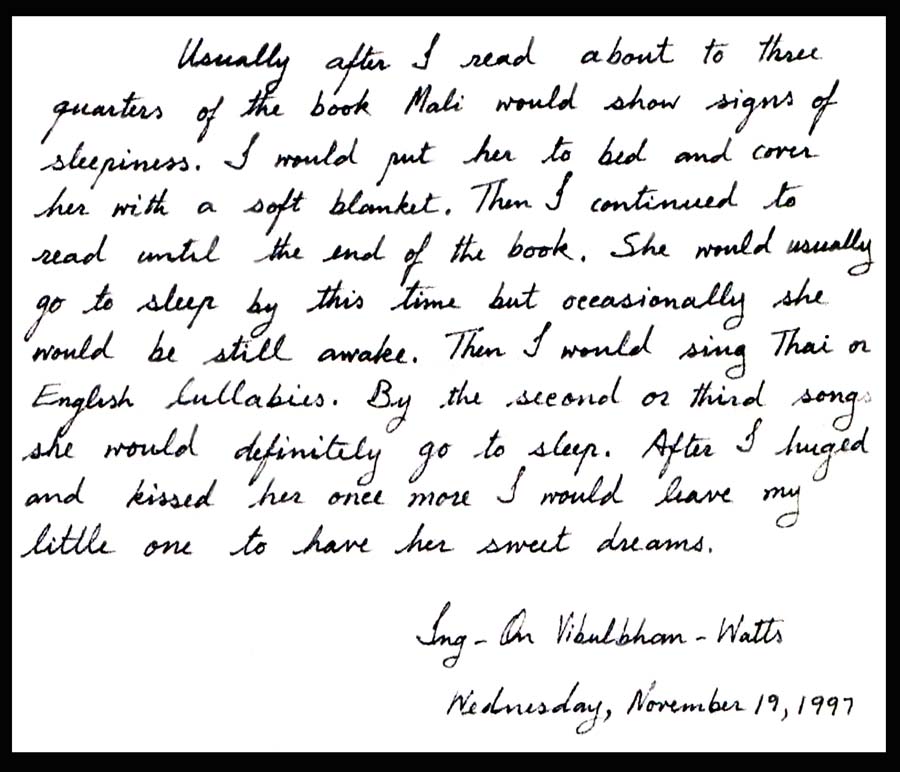 Usually after I read about to three
quarters of the book Mali would show signs of
sleepiness. I would put her to bed and cover
her with a soft blanket. Then I continued to
read until the end of the book. She would usually
go to sleep by this time but occasionally she
would be still awake. Then I would sing Thai or
English lullabies. By the second or third songs
she would definitely go to sleep. After I huged
and kissed her once more I would leave my
little one to have her sweet dreams.
Ing-On Vibulbhan-Watts
Wednesday, November 19, 1997